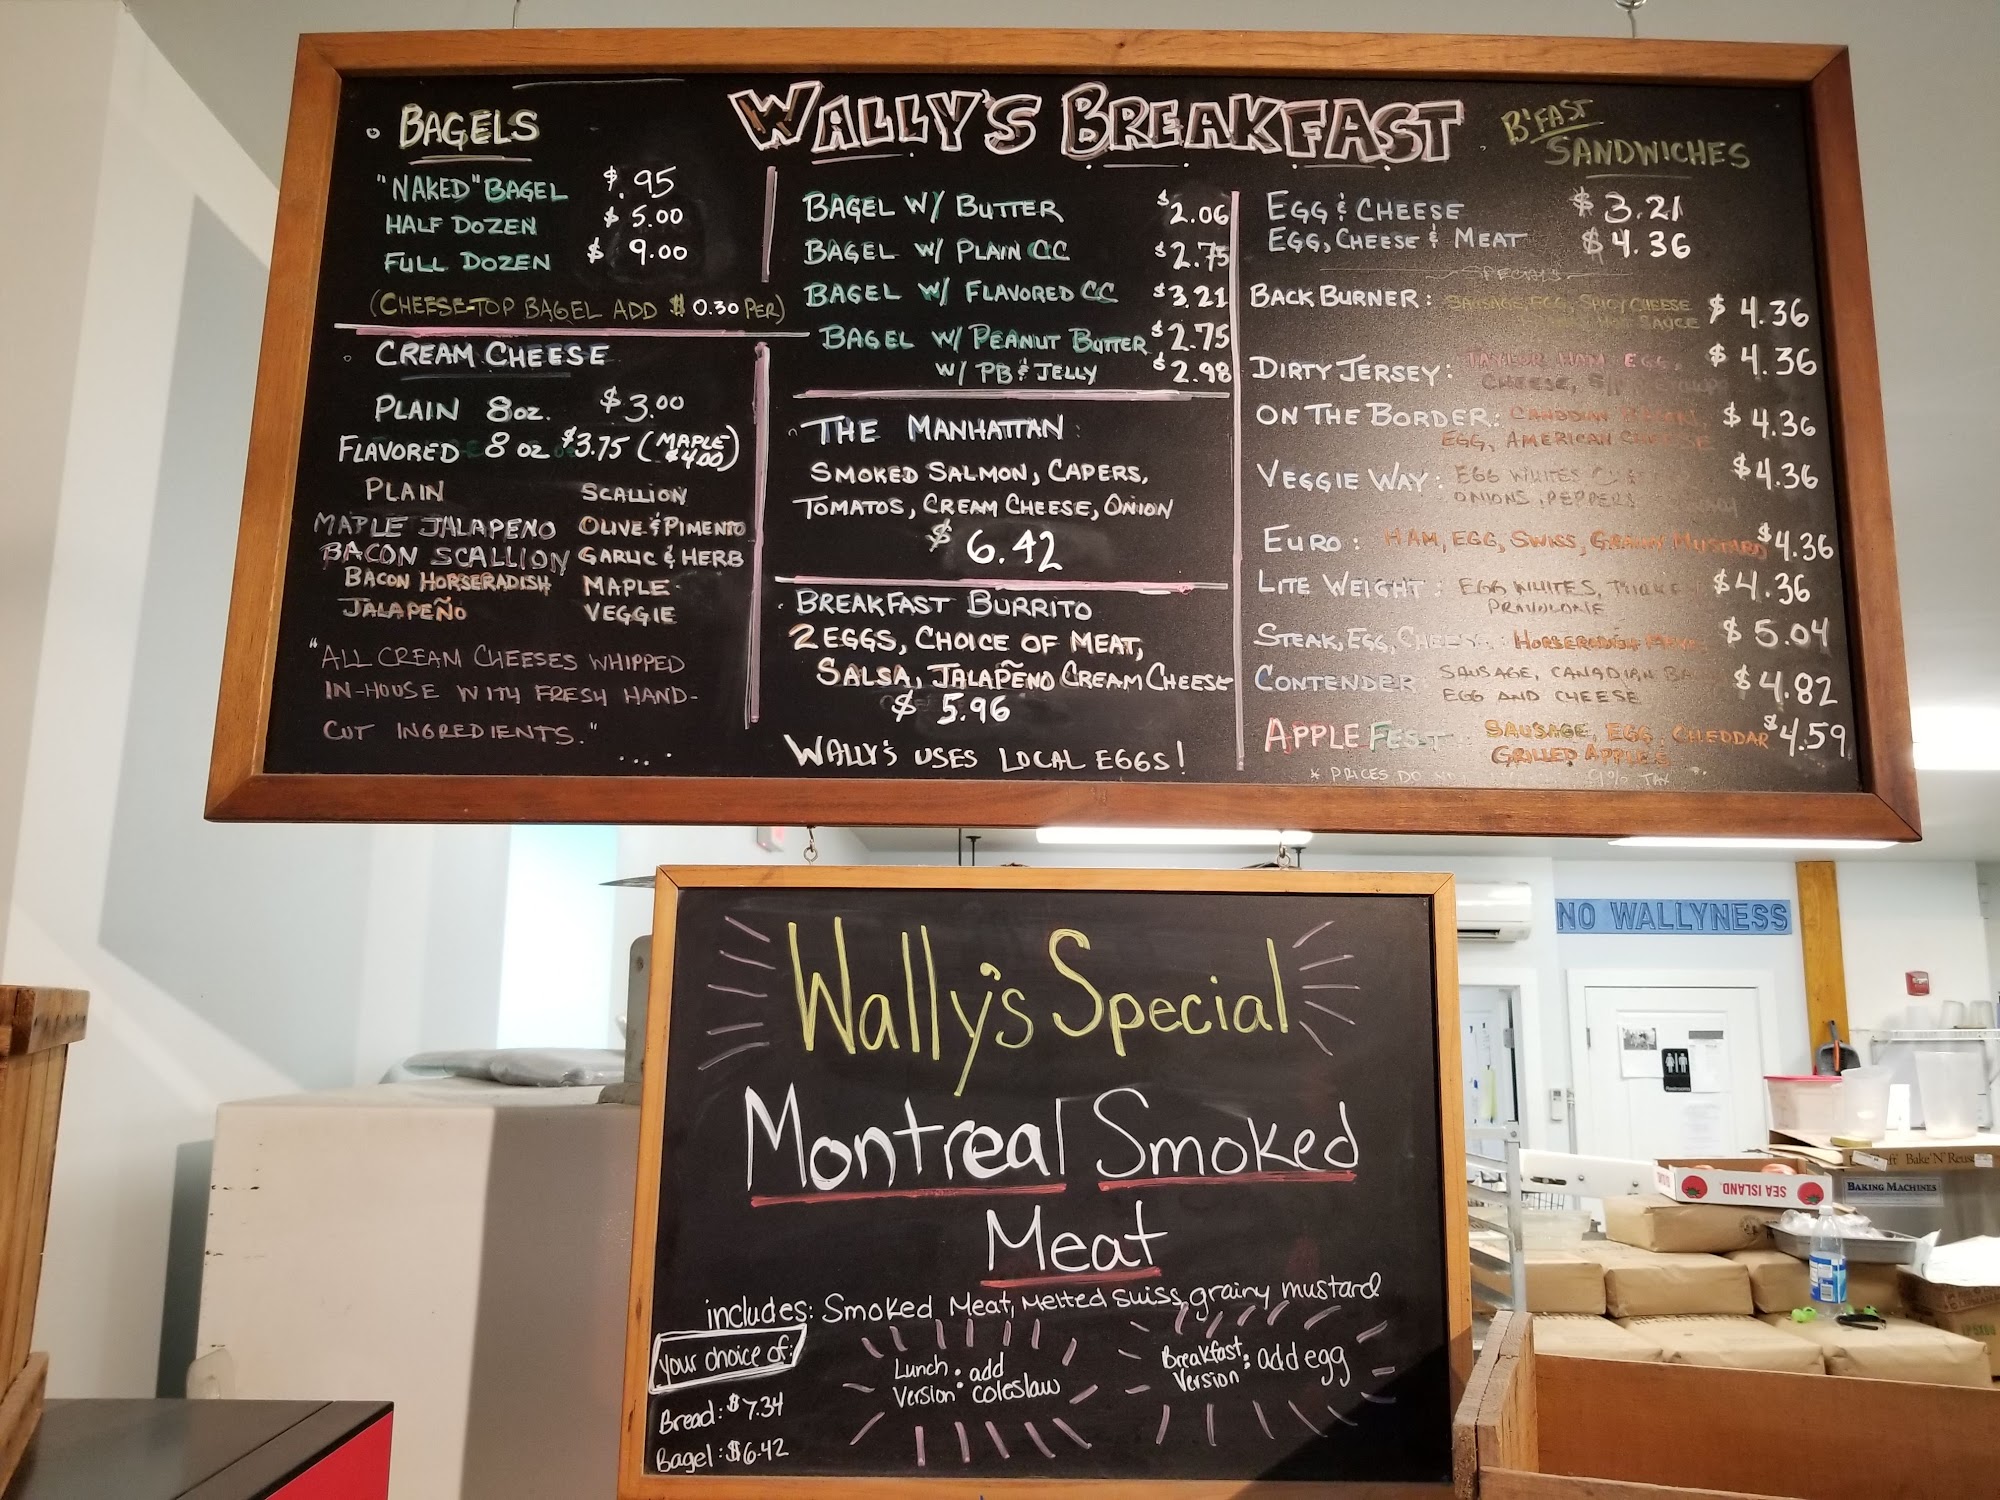 WALLY'S BREAKFAST
BAGELS
"NAKED" BAGEL $.95
HALF DOZEN $5.00
FULL DOZEN $9.00
(CHEESE-TOP BAGEL ADD $0.30 PER)
CREAM CHEESE
PLAIN 8oz. $3.00
FLAVORED 8 oz $3.75 (MAPLE $4.00)
PLAIN SCALLION
MAPLE JALAPENO OLIVE & PIMENTO
BACON SCALLION GARLIC & HERB
BACON HORSERADISH MAPLE
JALAPEÑO VEGGIE
"ALL CREAM CHEESES WHIPPED
IN-HOUSE WITH FRESH HAND-
CUT INGREDIENTS."
BAGEL W/ BUTTER $2.06
BAGEL W/ PLAIN CC $2.75
BAGEL W/ FLAVORED CC $3.21
BAGEL W/ PEANUT BUTTER $2.75
W/ PB & JELLY $2.98
THE MANHATTAN:
SMOKED SALMON, CAPERS,
TOMATOS, CREAM CHEESE, ONION
$6.42
BREAKFAST BURRITO
2 EGGS, CHOICE OF MEAT,
SALSA, JALAPEÑO CREAM CHEESE
$5.96
WALLY'S USES LOCAL EGGS!
B'FAST
SANDWICHES
EGG & CHEESE $3.21
EGG, CHEESE & MEAT $4.36
SPECIALS
BACK BURNER: SAUSAGE, EGG, SPICY CHEESE $4.36
SAUCE
DIRTY JERSEY: TAYLOR HAM, EGG, $4.36
CHEESE,
ON THE BORDER: CANADIAN BACON, $4.36
EGG, AMERICAN CHEESE
VEGGIE WAY: EGG WHITES $4.36
ONIONS, PEPPERS
EURO: HAM, EGG, SWISS, GRAINY MUSTARD $4.36
LITE WEIGHT: EGG WHITES, $4.36
PROVOLONE
STEAK, EGG, HORSERADISH MAYO $5.04
CONTENDER SAUSAGE, CANADIAN $4.82
EGG AND CHEESE
APPLE FEST: SAUSAGE, EGG, CHEDDAR $4.59
GRILLED APPLES
* PRICES DO 9% TAX
Wally's Special
Montreal Smoked
Meat
includes: Smoked Meat, Melted Swiss, grainy mustard
your choice of:
Bread: $7.34
Bagel: $6.42
Lunch Version: add coleslaw
Breakfast Version: add egg
NO WALLYNESS
Restrooms
SEA ISLAND
Bake'N'Reuse
BAKING MACHINES